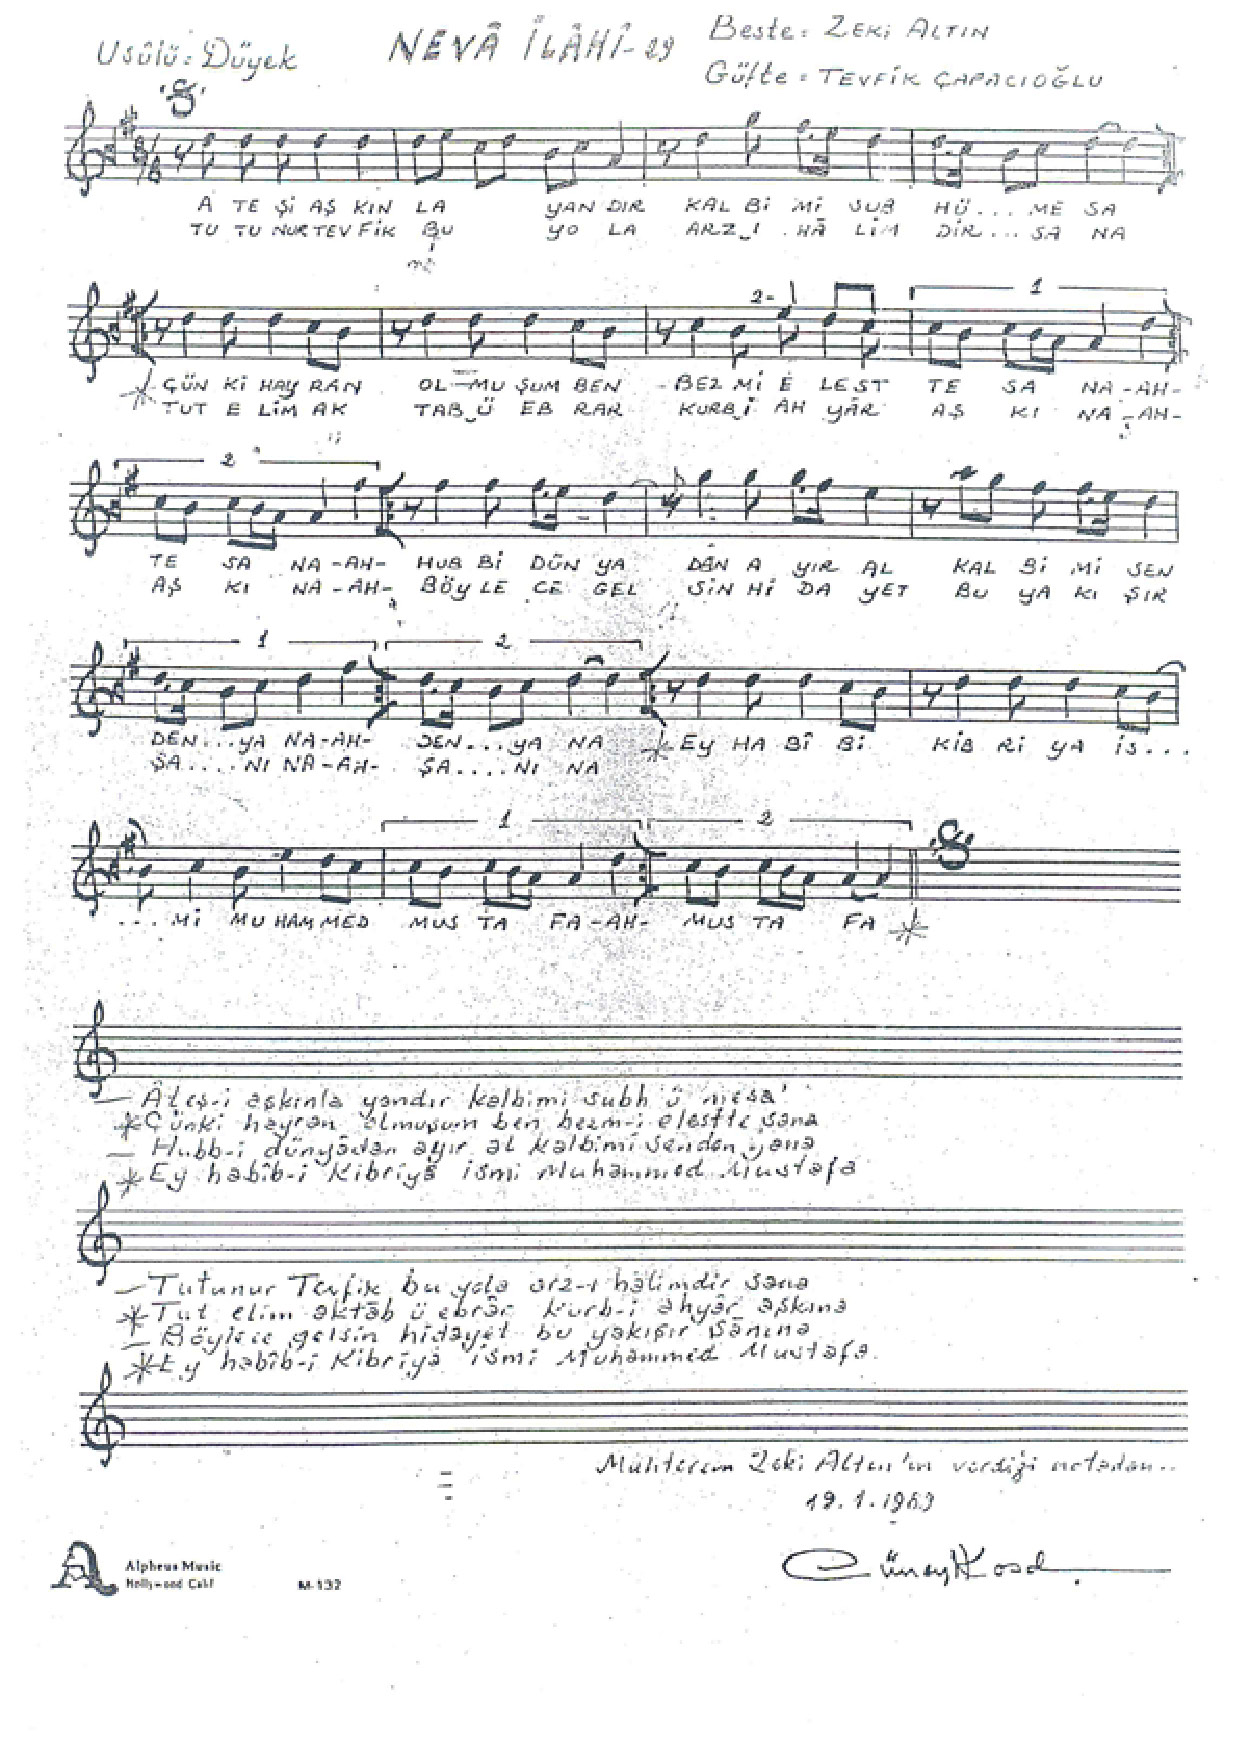 Usûlü: Düyek
NEVÂ İLÂHÎ-29
Beste: ZEKİ ALTIN
Güfte: TEVFİK ÇAPACIOĞLU
A TE Şİ AŞ KIN LA YAN DIR KAL Bİ Mİ SUB HÜ... ME SA
TU TU NUR TEV FİK BU YO LA ARZ I HÂ LİM DİR... SA NA
2-
1
ÇÜN Kİ HAY RAN OL MU ŞUM BEN BEZ Mİ E LEST TE SA NA-AH-
TUT E LİM AK TAB Ü EB RAR KURB İ AH YÂR AŞ KI NA-AH-
2
TE SA NA-AH- HUB Bİ DÜN YA DAN A YIR AL KAL Bİ Mİ SEN
AŞ KI NA-AH- BÖY LE CE GEL SİN Hİ DA YET BU YA KI ŞIR
1 2
DEN...YA NA-AH- DEN...YA NA EY HA Bİ Bİ KİB Rİ YA İS...
ŞA....NI NA-AH- ŞA....NI NA
1 2
...Mİ MU HAM MED MUS TA FA-AH- MUS TA FA
— Âteş-i aşkınla yandır kalbimi subh ü mesa'
* Çünki hayran olmuşum ben bezm-i elestte sana
— Hubb-i dünyâdan ayır al kalbimi senden yana
* Ey habîb-i Kibriyâ ismi Muhammed Mustafa
— Tutunur Tevfik bu yola arz-ı hâlimdir sana
* Tut elim aktâb ü ebrâr kurb-i ahyâr aşkına
— Böylece gelsin hidayet bu yakışır şânına
* Ey habîb-i Kibriyâ ismi Muhammed Mustafa
Muhterem Zeki Altın'ın verdiği notadan..
19.1.1983
Alpheus Music
Hollywood Calif
M-132